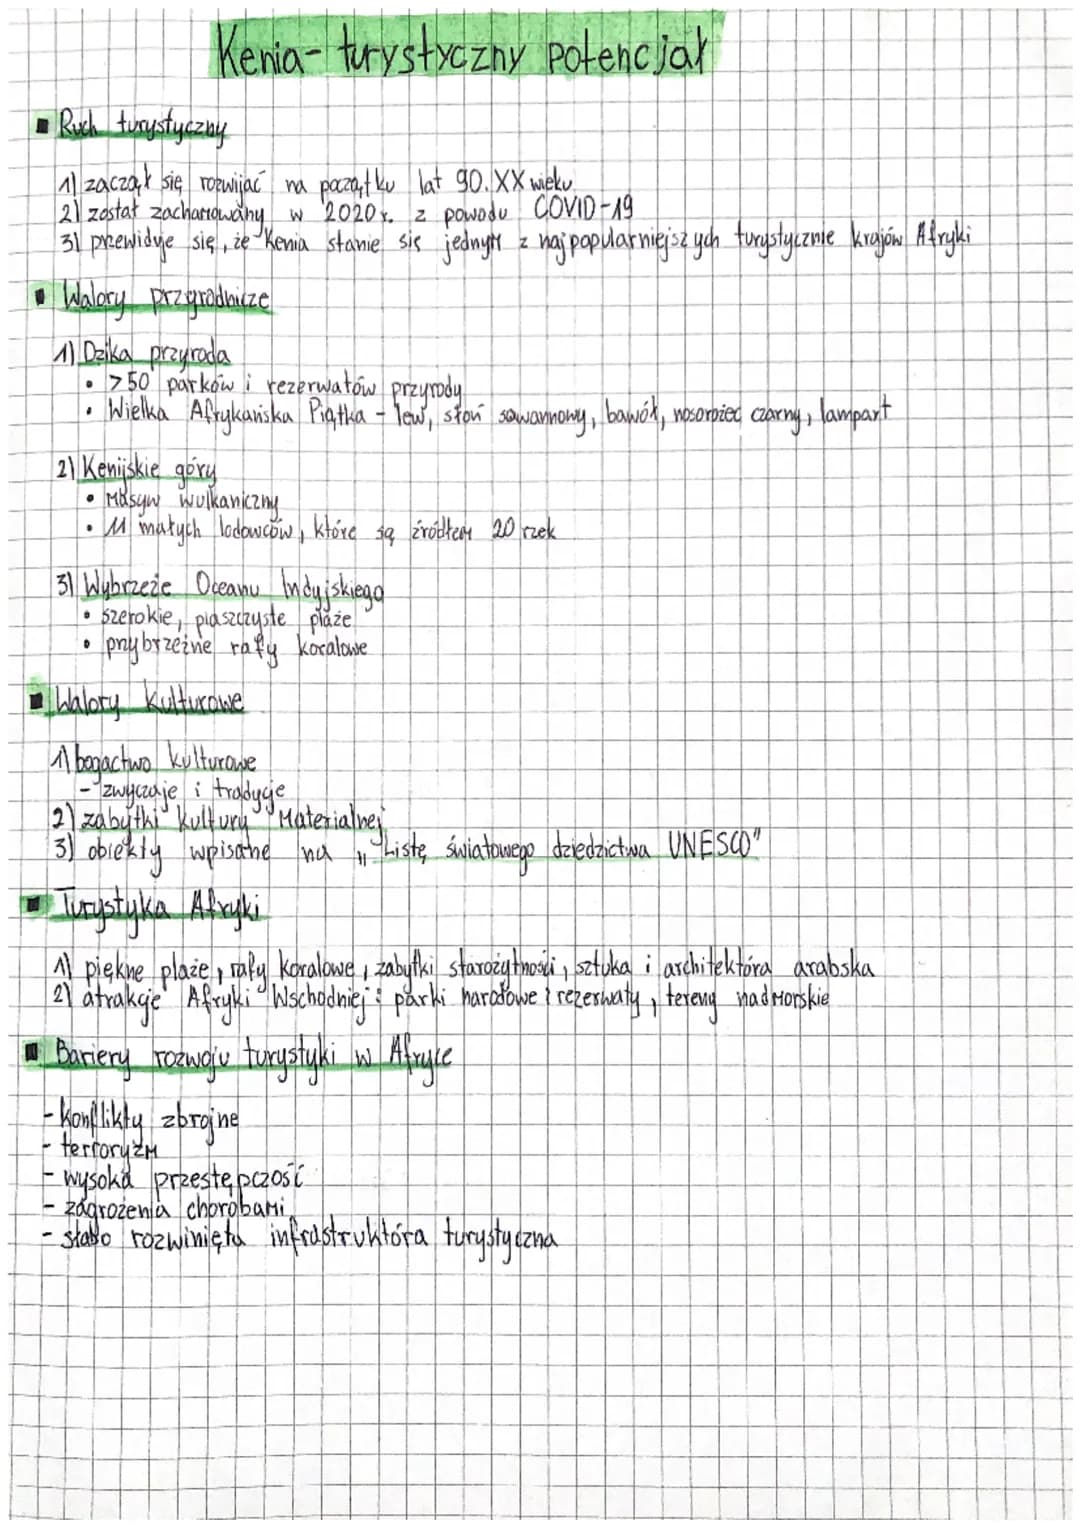 Kenia - turystyczny potencjał
▪ Ruch turystyczny
1) zaczął się rozwijać na początku lat 90. XX wieku
2) został zachamowany w 2020 r. z powodu COVID-19
3) przewiduje się, że Kenia stanie się jednym z najpopularniejszych turystycznie krajów Afryki
▪ Walory przyrodnicze
1) Dzika przyroda
• >50 parków i rezerwatów przyrody
• Wielka Afrykańska Piątka - lew, słoń sawannowy, bawół, nosorożec czarny, lampart
2) Kenijskie góry
• Masyw wulkaniczny
• 11 małych lodowców, które są źródłem 20 rzek
3) Wybrzeże Oceanu Indyjskiego
• szerokie, piaszczyste plaże
• przybrzeżne rafy koralowe
▪ Walory kulturowe
1) bogactwo kulturowe
- zwyczaje i tradycje
2) zabytki kultury Materialnej
3) obiekty wpisane na „Listę światowego dziedzictwa UNESCO"
▪ Turystyka Afryki
1) piękne plaże, rafy koralowe, zabytki starożytności, sztuka i architektóra arabska
2) atrakcje Afryki Wschodniej: parki narodowe i rezerwaty, tereny nadmorskie
▪ Bariery rozwoju turystyki w Afryce
- konflikty zbrojne
- terroryzm
- wysoka przestępczość
- zagrożenia chorobami
- słabo rozwinięta infrastruktóra turystyczna